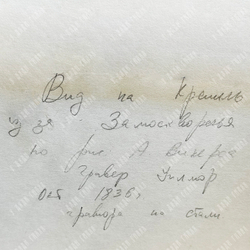 Вид на Кремль
из за Замоскворечья
по рис А Викерса
Гравер Уилмор
Окт 1836г
гравюра на стали